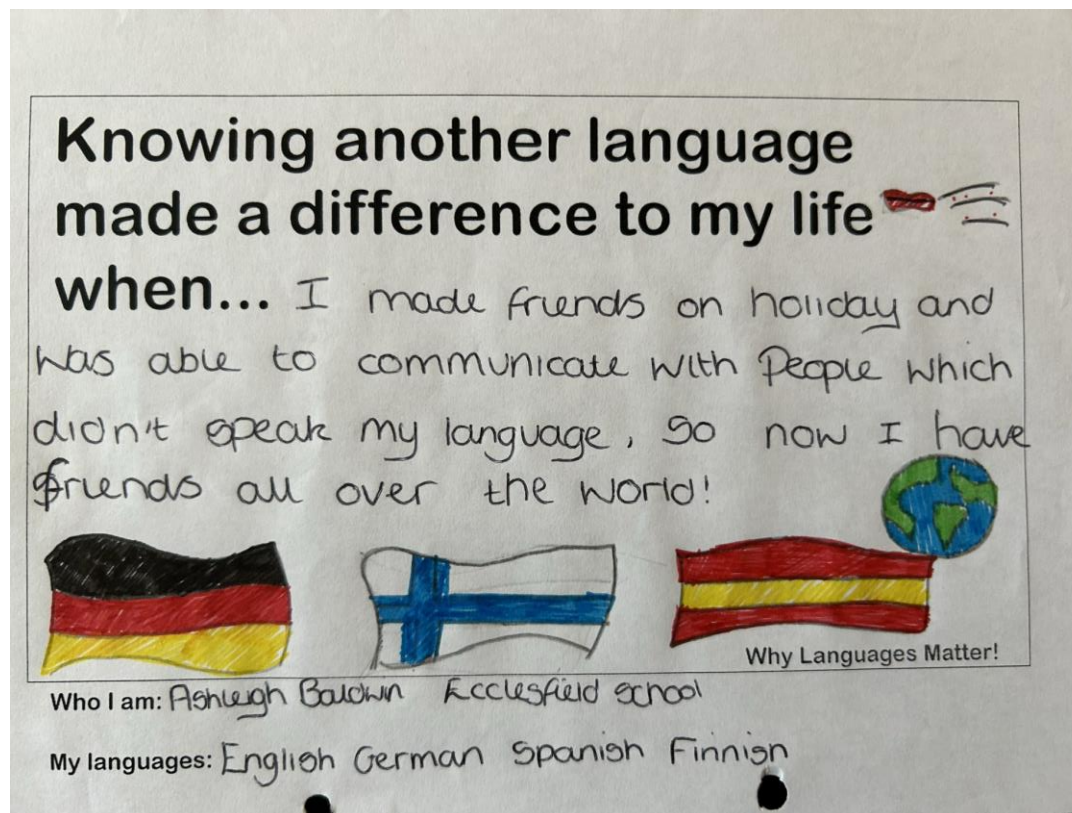 Knowing another language
made a difference to my life
when... I made friends on holiday and
was able to communicate with People which
didn't speak my language, so now I have
friends all over the world!
Why Languages Matter!
Who I am: Ashleigh Baldwin Ecclesfield school
My languages: English German Spanish Finnish